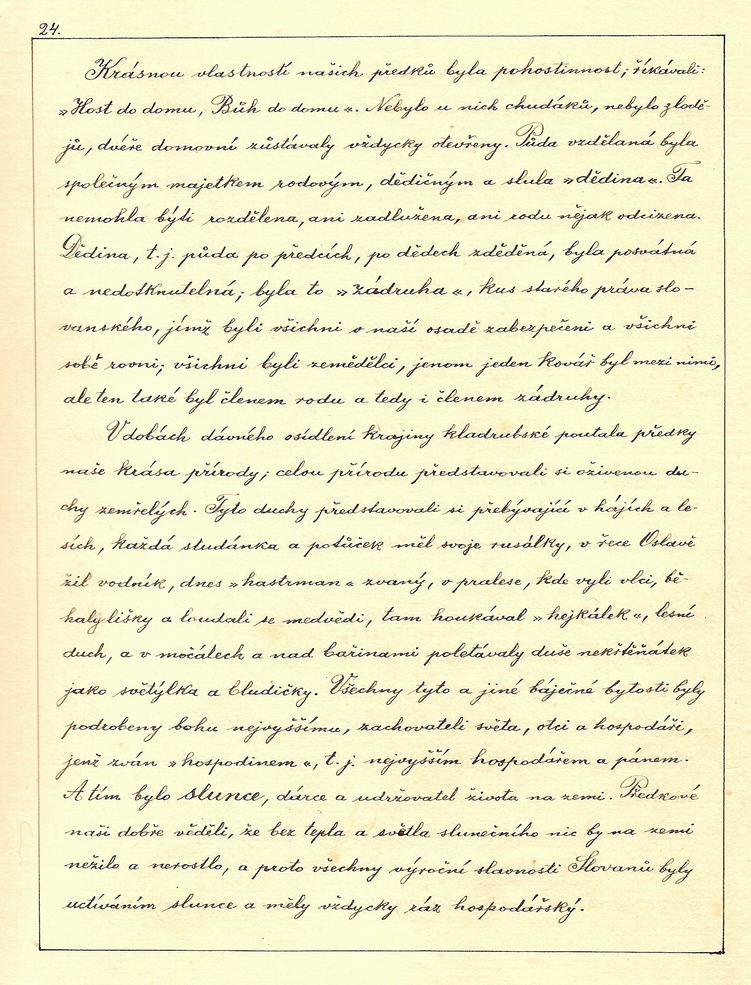 24.
Krásnou vlastností našich předků byla pohostinnost; říkávali:
»Host do domu, Bůh do domu«. Nebylo u nich chudáků, nebylo zlodě-
jů, dvéře domovní zůstávaly vždycky otevřeny. Půda vzdělaná byla
společným majetkem rodovým, dědičným a slula »dědina«. Ta
nemohla býti rozdělena, ani zadlužena, ani rodu nějak odcizena.
Dědina, t. j. půda po předcích, po dědech zděděná, byla posvátná
a nedotknutelná; byla to »zádruha«, kus starého práva slo-
vanského, jímž byli všichni v naší osadě zabezpečeni a všichni
sobě rovni; všichni byli zemědělci, jenom jeden kovář byl mezi nimi,
ale ten také byl členem rodu a tedy i členem zádruhy.
V dobách dávného osídlení krajiny kladrubské poutala předky
naše krása přírody; celou přírodu představovali si oživenou du-
chy zemřelých. Tyto duchy představovali si přebývající v hájích a le-
sích, každá studánka a potůček měl svoje rusálky, v řece Oslavě
žil vodník, dnes »hastrman« zvaný, v pralese, kde vyli vlci, bě-
haly lišky a loudali se medvědi, tam houkával »hejkálek«, lesní
duch, a v močálech a nad bařinami poletávaly duše nekřtěňátek
jako světýlka a bludičky. Všechny tyto a jiné báječné bytosti byly
podrobeny bohu nejvyššímu, zachovateli světa, otci a hospodáři,
jenž zván »hospodinem«, t. j. nejvyšším hospodářem a pánem.
A tím bylo slunce, dárce a udržovatel života na zemi. Předkové
naši dobře věděli, že bez tepla a světla slunečního nic by na zemi
nežilo a nerostlo, a proto všechny výroční slavnosti Slovanů byly
uctíváním slunce a měly vždycky ráz hospodářský.